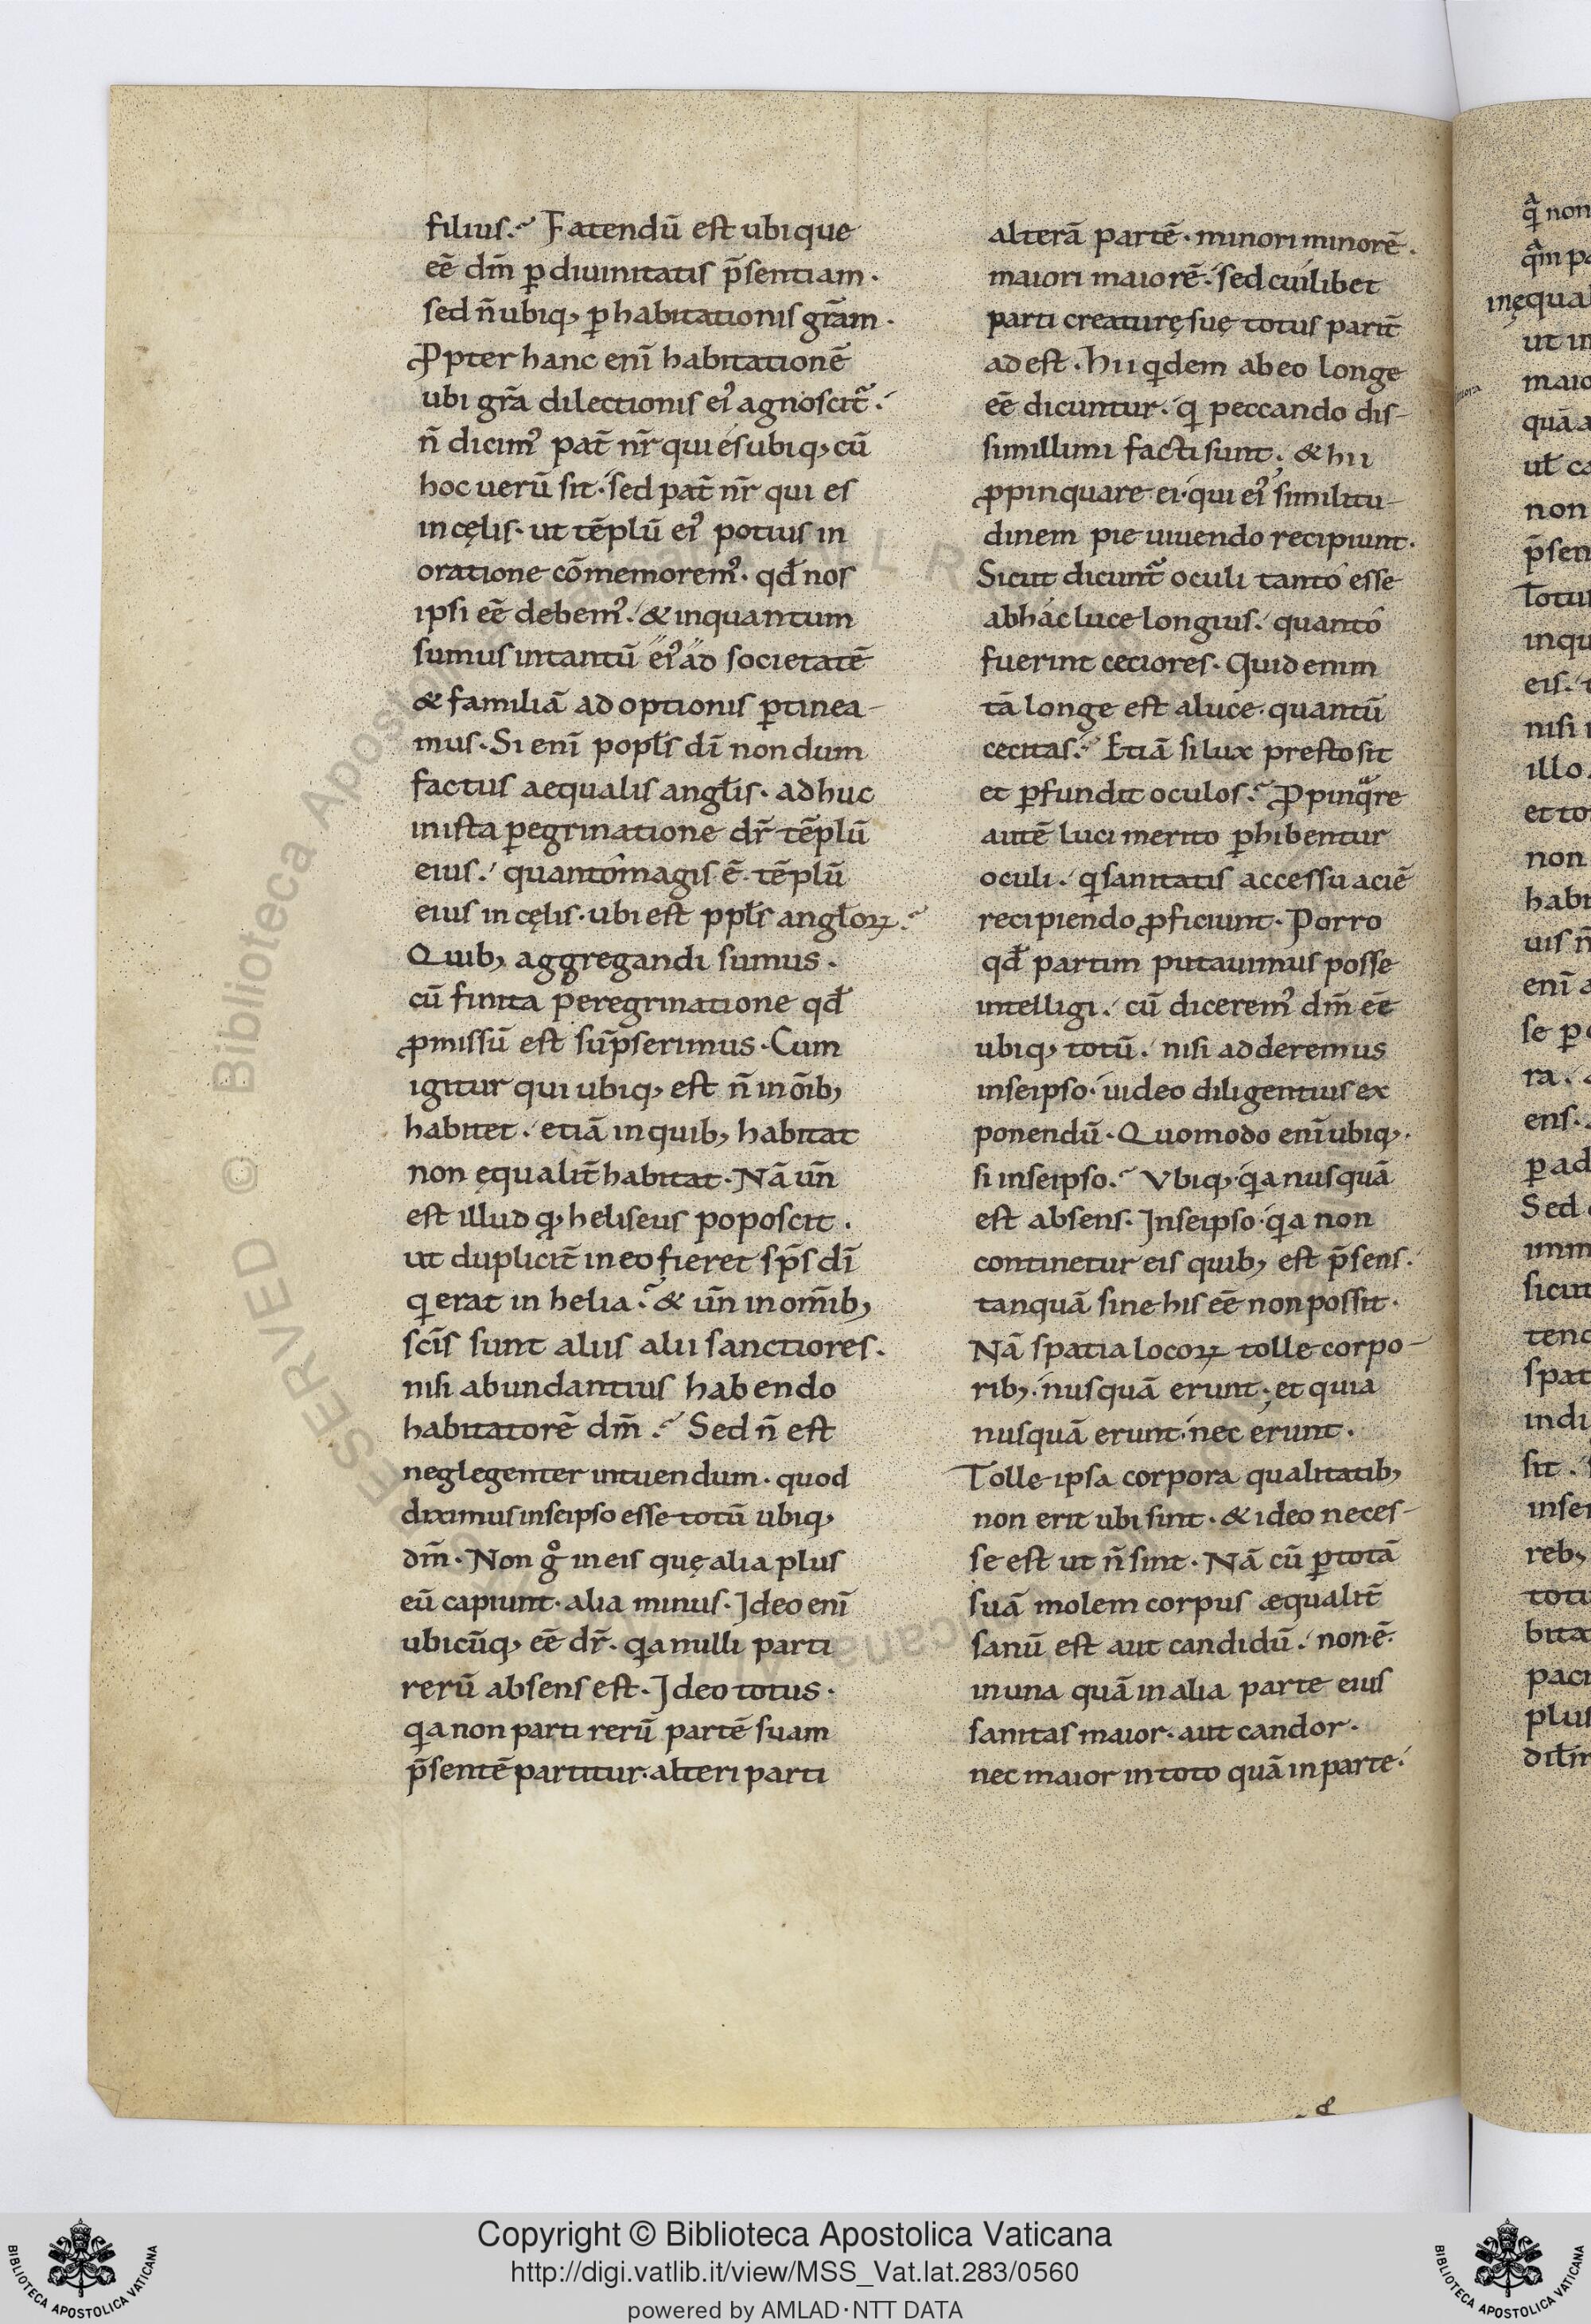 filius.~ Fatendū est ubique
eē dm̄ ꝑ diuinitatis p̄sentiam·
sed n̄ ubiq; ꝑ habitationis grām·
Ꝓpter hanc eni habitationē
ubi grā dilectionis ei᾽ agnoscit᷑·
n̄ dicim᾽ pat̄ nr̄ qui es ubiq; cū
hoc uerū sit· sed pat̄ nr̄ qui es
in cęlis· ut tēplū ei᾽ potius in
oratione cōmemorem᾽· qd̄ nos
ipsi eē debem᾽· & inquantum
sumus intantū ei᾽ ad societatē
& familiā adoptionis ꝑtinea-
mus· Si enī popl̄s dī nondum
factus aequalis angl̄is· adhuc
in ista ꝑegrinatione dr̄ tēplū
eius· quantomagis ē tēplū
eius in cęlis· ubi est ppl̄s angl̄oꝝ·~
Quib; aggregandi sumus·
cū finita peregrinatione qd̄
ꝓmissū est sūpserimus· Cum
igitur qui ubiq; est n̄ in oīb;
habitet· etiā in quib; habitat
non ęqualit̄ habitat· Nā un̄
est illud ꝙ heliseus poposcit·
ut duplicit̄ in eo fieret sp̄s dī
q̇ erat in helia·~ & un̄ in om̄ib;
scīs sunt alus alii sanctiores·
nisi abundantius habendo
habitatorē dm̄·~ Sed n̄ est
neglegenter intuendum· quod
diximus in seipso esse totū ubiq;
dm̄· Non g̊ in eis quę alia plus
eū capiunt· alia minus· Ideo enī
ubicūq; eē dr̄· q̇a nulli parti
rerū absens est· Ideo totus·
q̇a non parti rerū partē suam
p̄sentē partitur· alteri parti
alterā partē· minori minorē·
maiori maiorē· sed cuilibet
parti creaturę suę totus parit̄
adest· hii q̇dem ab eo longe
eē dicuntur· q̇ peccando dis-
simillimi facti sunt· & hii
ꝓpinquare ei· qui ei᾽ similitu-
dinem pie uiuendo recipiunt·
Sicut dicunt᷑ oculi tanto esse
ab hac luce longius· quanto
fuerint ceciores· Quid enim
tā longe est a luce· quantū
cecitas·~ Etiā si lux presto sit
et ꝑfundit oculos·~ Ꝓpinqᵃre
autē luci merito ꝑhibentur
oculi· q̇ sanitatis accessu aciē
recipiendo ꝓficiunt· Porro
qd̄ partim putauimus posse
intelligi· cū dicerem᾽ dm̄ eē
ubiq; totū· nisi adderemus
in seipso· uideo diligentius ex
ponendū· Quomodo enī ubiq;·
si in seipso·~ Vbiq; q̇a nusquā
est absens· In seipso· q̇a non
continetur eis quib; est p̄sens·
tanquā sine his eē non possit·
Nā spatia locoꝝ tolle corpo-
rib;· nusquā erunt· et quia
nusquā erunt· nec erunt·
Tolle ipsa corpora qualitatib;
non erit ubi sint· & ideo neces-
se est ut n̄ sint· Nā cū ꝑ totā
suā molem corpus æqualit̄
sanū est aut candidū· non ē·
in una quā in alia parte eius
sanitas maior· aut candor·
nec maior in toto quā in parte·
Copyright © Biblioteca Apostolica Vaticana
http://digi.vatlib.it/view/MSS_Vat.lat.283/0560
powered by AMLAD·NTT DATA
BIBLIOTECA APOSTOLICA VATICANA
BIBLIOTECA APOSTOLICA VATICANA